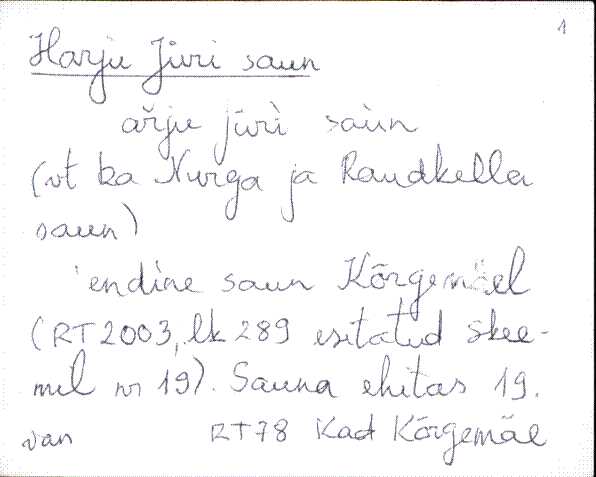 1
Harju Jüri saun
ařju jüri saùn
(vt ka Nurga ja Raudkella
saun)
'endine saun Kõrgemäel
(RT 2003, lk 289 esitatud skee-
mil nr 19). Sauna ehitas 19.
van RT78 Kad Kõrgemäe